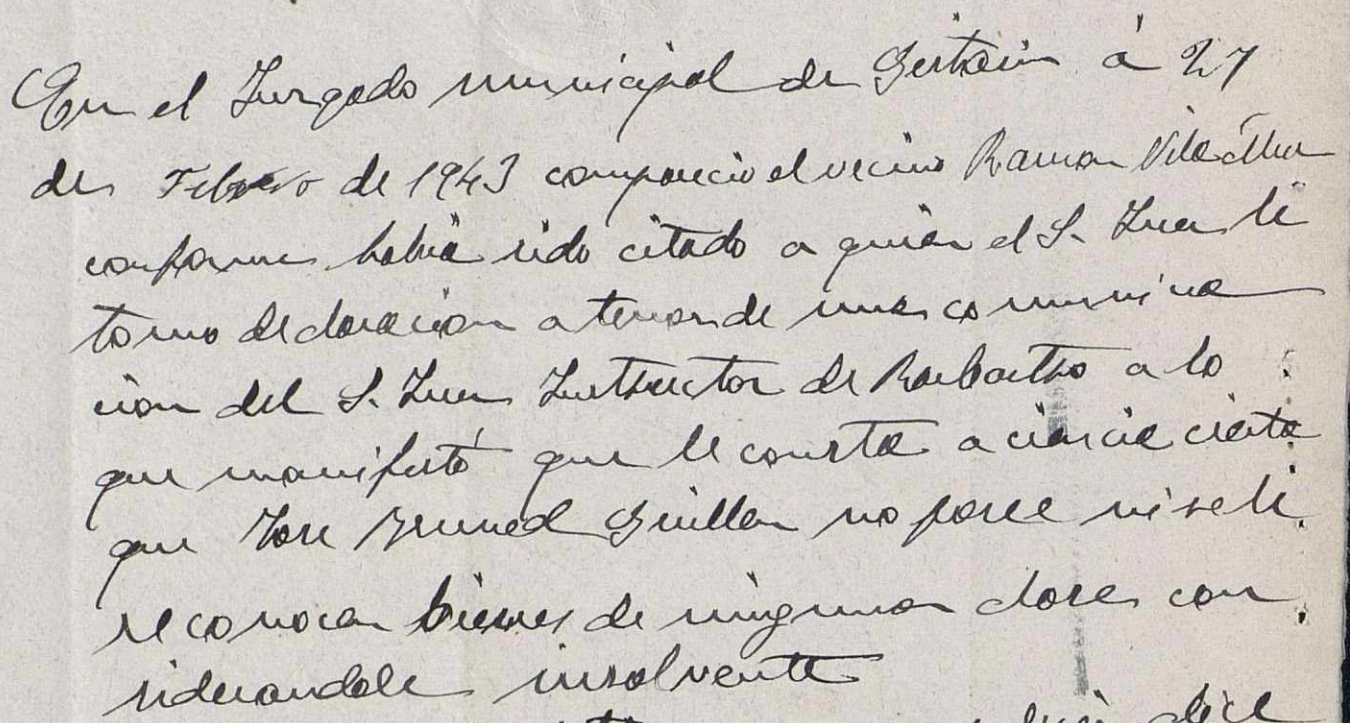 En el Juzgado municipal de Gistain á 27
de Febrero de 1943 comparecio el vecino Ramon Vila
conforme habia sido citado a quien el S. Juez le
tomo declaracion a tenor de una comunica
cion del S. Juez Instructor de Barbastro a lo
que manifestó que le consta a ciencia cierta
que Jose Bruned Guillen no posee ni se le
reconocen bienes de ninguna clase con
siderandole insolvente
dice